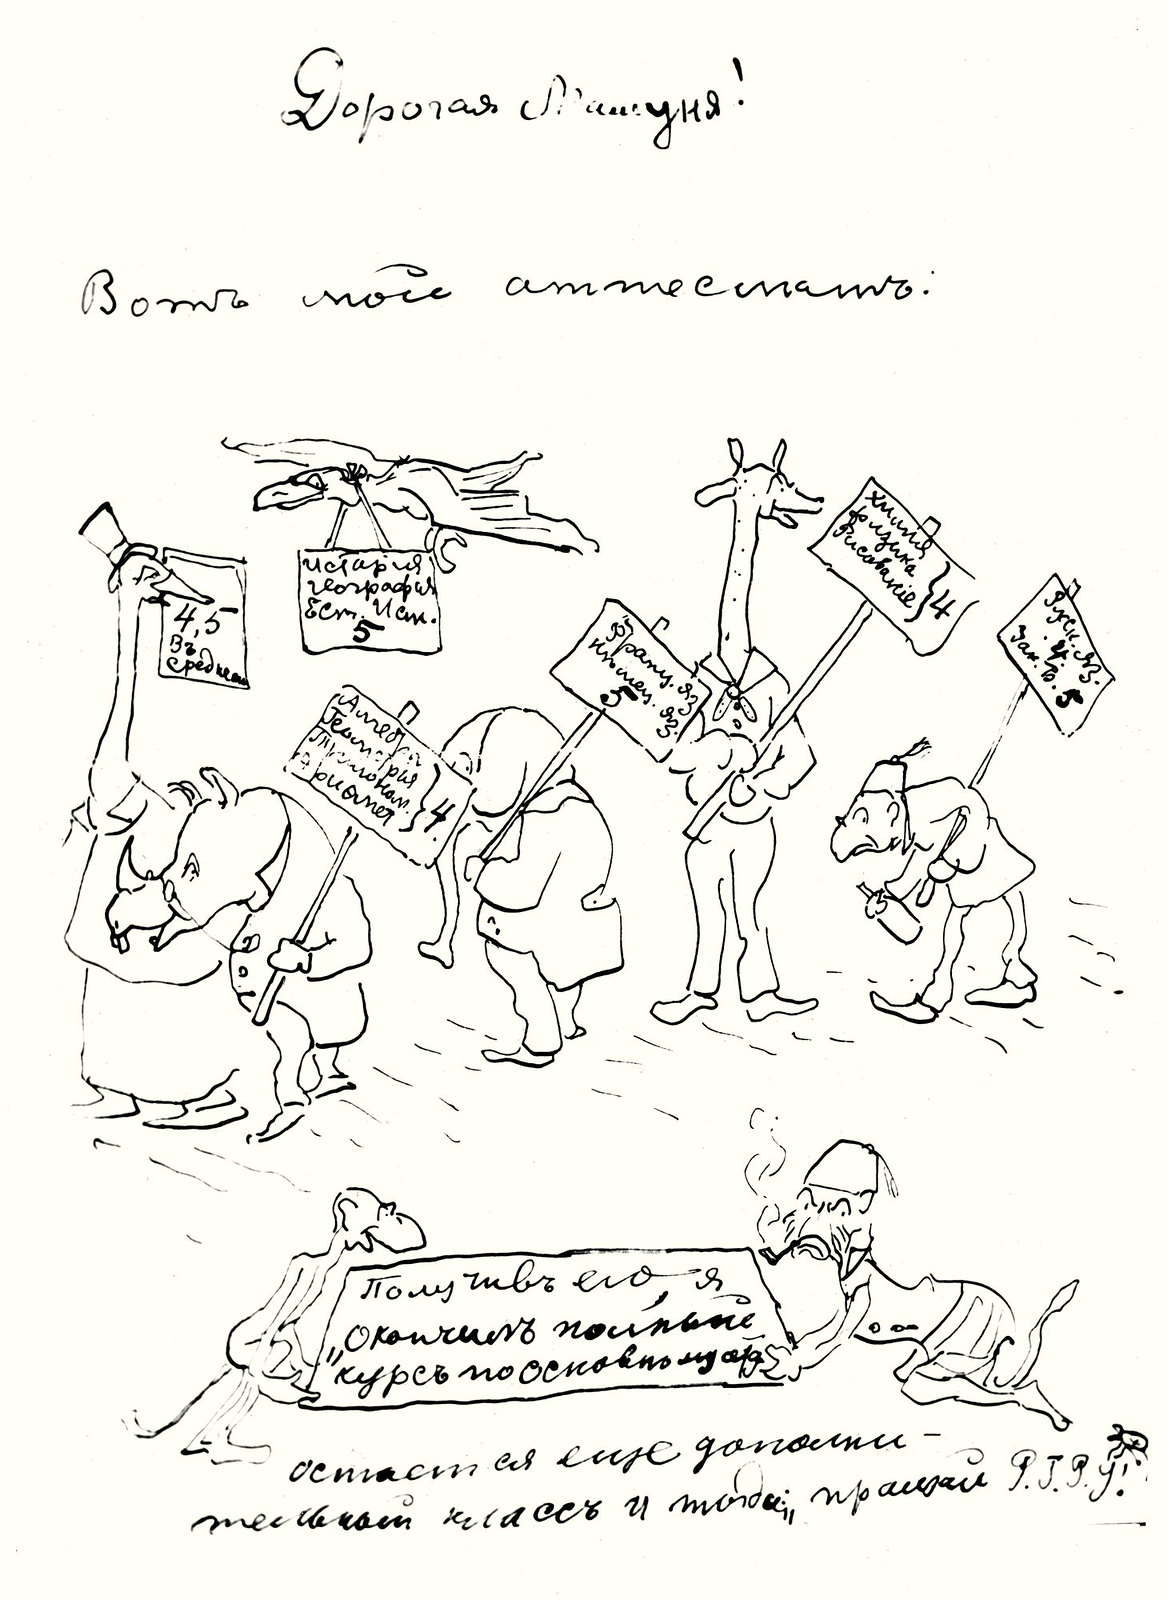 Дорогая Машуня!
Вотъ мой аттестатъ:
4,5
Въ
среднем
История
География
Ест. Ист.
5
Алгебра
Геометрия
Тригоном.
Ариѳмет
} 4
Франц. яз
Нѣмец. яз.
5
Химия
Физика
Рисование
} 4
Русск. яз.
4.
Зак. Б. 5
Получивъ его я
„окончилъ полный
курсъ по основному
остается еще дополни-
тельный классъ и тогда „прощай Р.Г.Р.У!